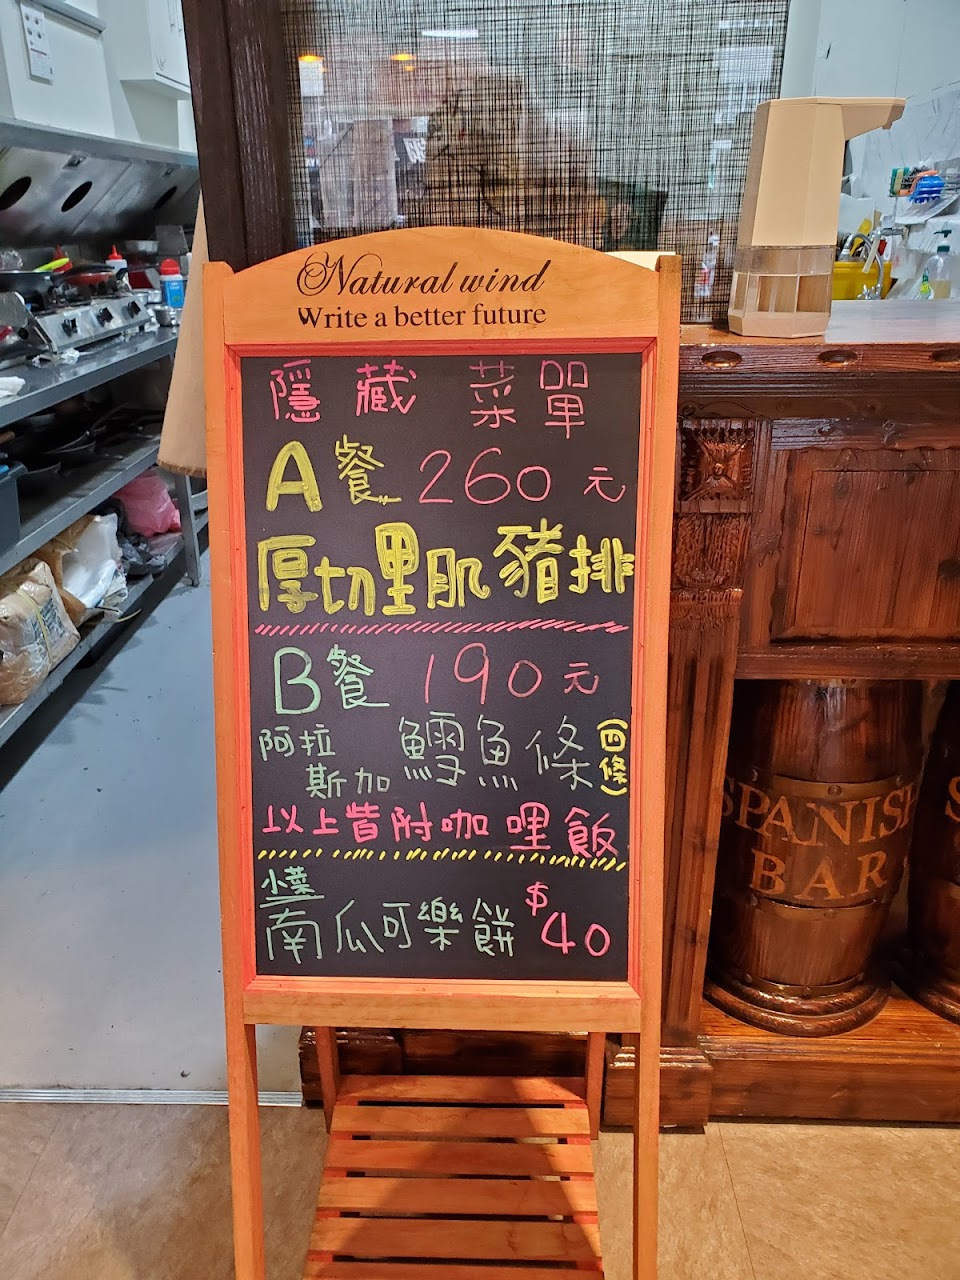 Natural wind
Write a better future
隱藏菜單
A餐 260元
厚切里肌豬排
B餐 190元
阿拉斯加鱈魚條(四條)
以上皆附咖哩飯
小菜
南瓜可樂餅 $40
SPANISH
BAR